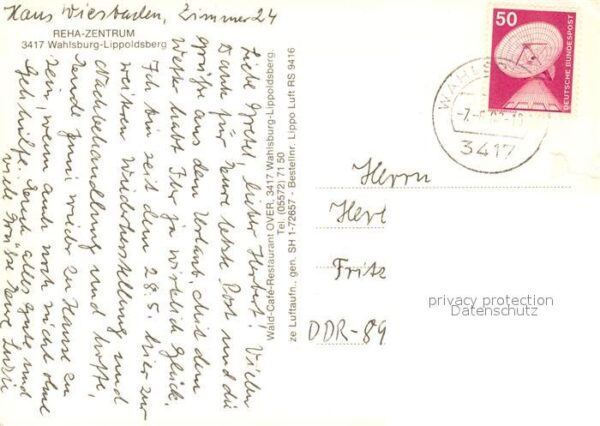 Haus Wiesbaden, Zimmer 24
REHA-ZENTRUM
3417 Wahlsburg-Lippoldsberg
Liebe Grete, lieber Herbert! Vielen
Dank für Eure letzte Post und die
Grüße aus dem Urlaub, mit dem
Wetter habt Ihr ja wirklich Glück.
Ich bin seit dem 28.5. hier zur
weiteren Wiederherstellung und
Nachbehandlung und hoffe,
Ende Juni wieder zu Hause zu
sein, wenn auch noch nicht ohne
Gehhilfe. Euch alles Gute und
viele Grüße Eure
Wald-Café-Restaurant OVER, 3417 Wahlsburg-Lippoldsberg
Tel. (05572) 71 50
ze Luftaufn., gen. SH 1-72657 - Bestellnr. Lippo Luft RS 9416
50
DEUTSCHE BUNDESPOST
3417
Herrn
Fritz
DDR-89
privacy protection
Datenschutz